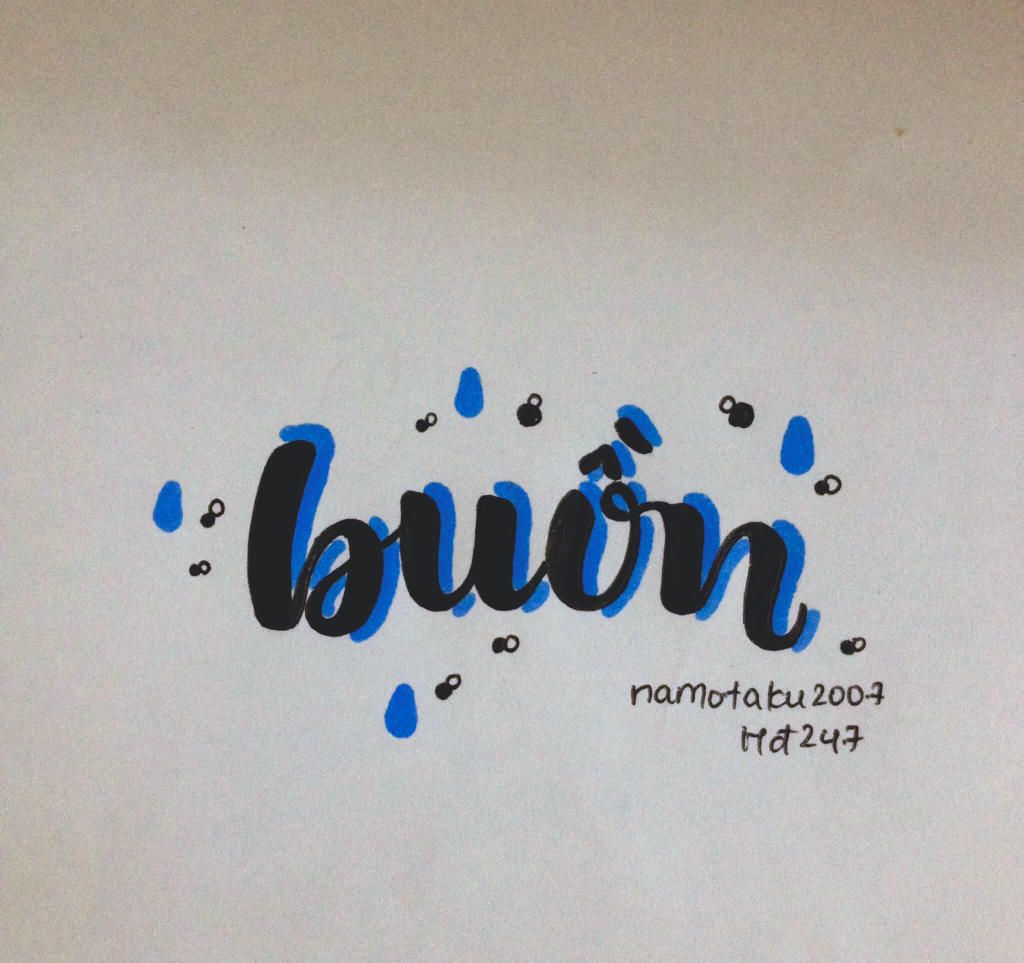 buồn
namotaku2007
Hd247